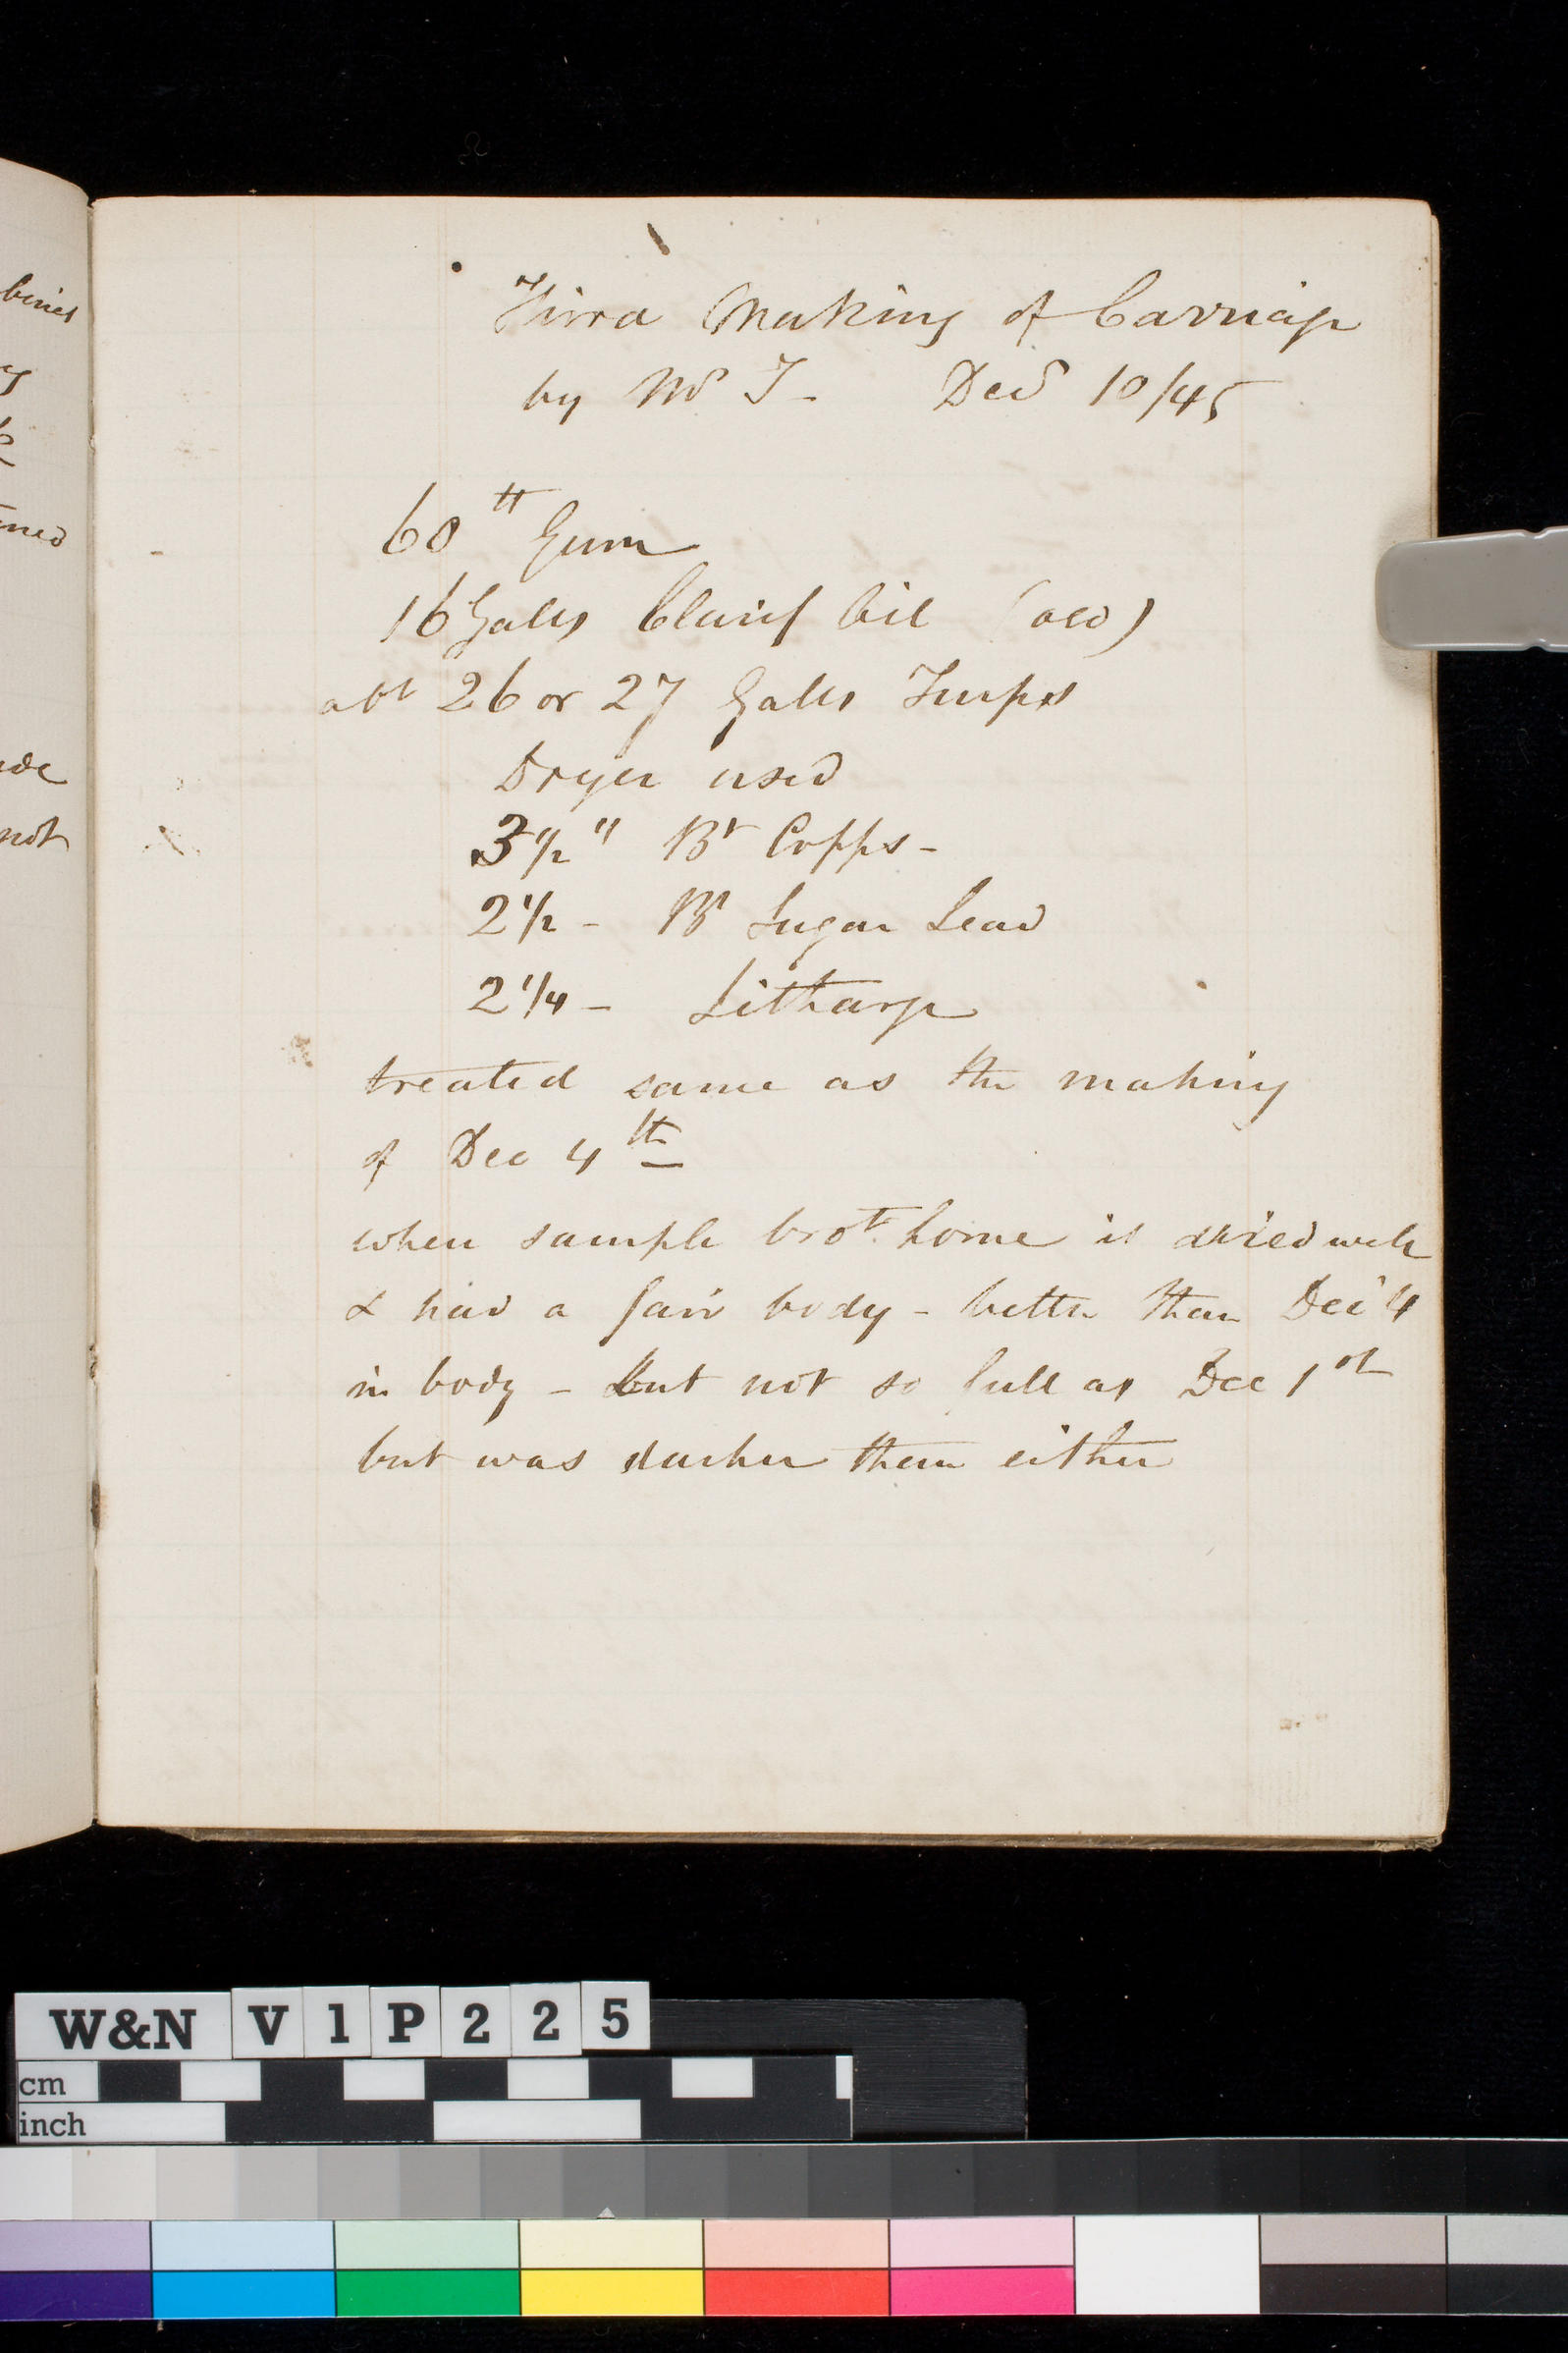 bines
ined
not
Third Making of Carriage
by Mr T - Decr 10/45
60 lb Gum
16 Galls Clarifd Oil (old)
abt 26 or 27 Galls Turps
Dryer used
3 1/2 " Bt Copps -
2 1/2 - Bt Sugar Lead
2 1/4 - Litharge
treated same as the making
of Dec 4th
when sample brot home it dried well
& had a fair body - better than Dec 4
in body - but not so full as Dec 1st
but was darker than either
W&N V1P225
cm
inch